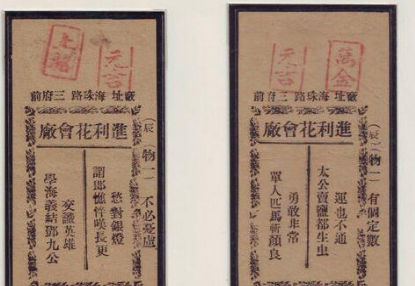 元吉
廠址 海珠路 三府前
進利花會廠
(辰)物一 不必憂慮
愁對銀燈
謂郎憔悴嘆長更
交識英雄
學海義結鄧九公
萬金
元吉
廠址 海珠路 三府前
進利花會廠
(辰)物一 有個定數
運也不通
太公賣鹽都生虫
勇敢非常
單人匹馬斬顏良